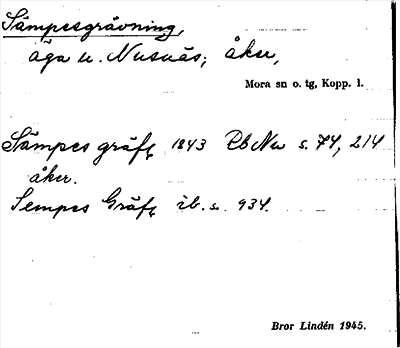 Sämpesgrävning,
äga u. Nusnäs; åker,
Mora sn o. tg, Kopp. l.
Sämpes gräft 1843 Lb Nu s. 74, 214
åker.
Sempes Gräft ib. s. 934.
Bror Lindén 1945.